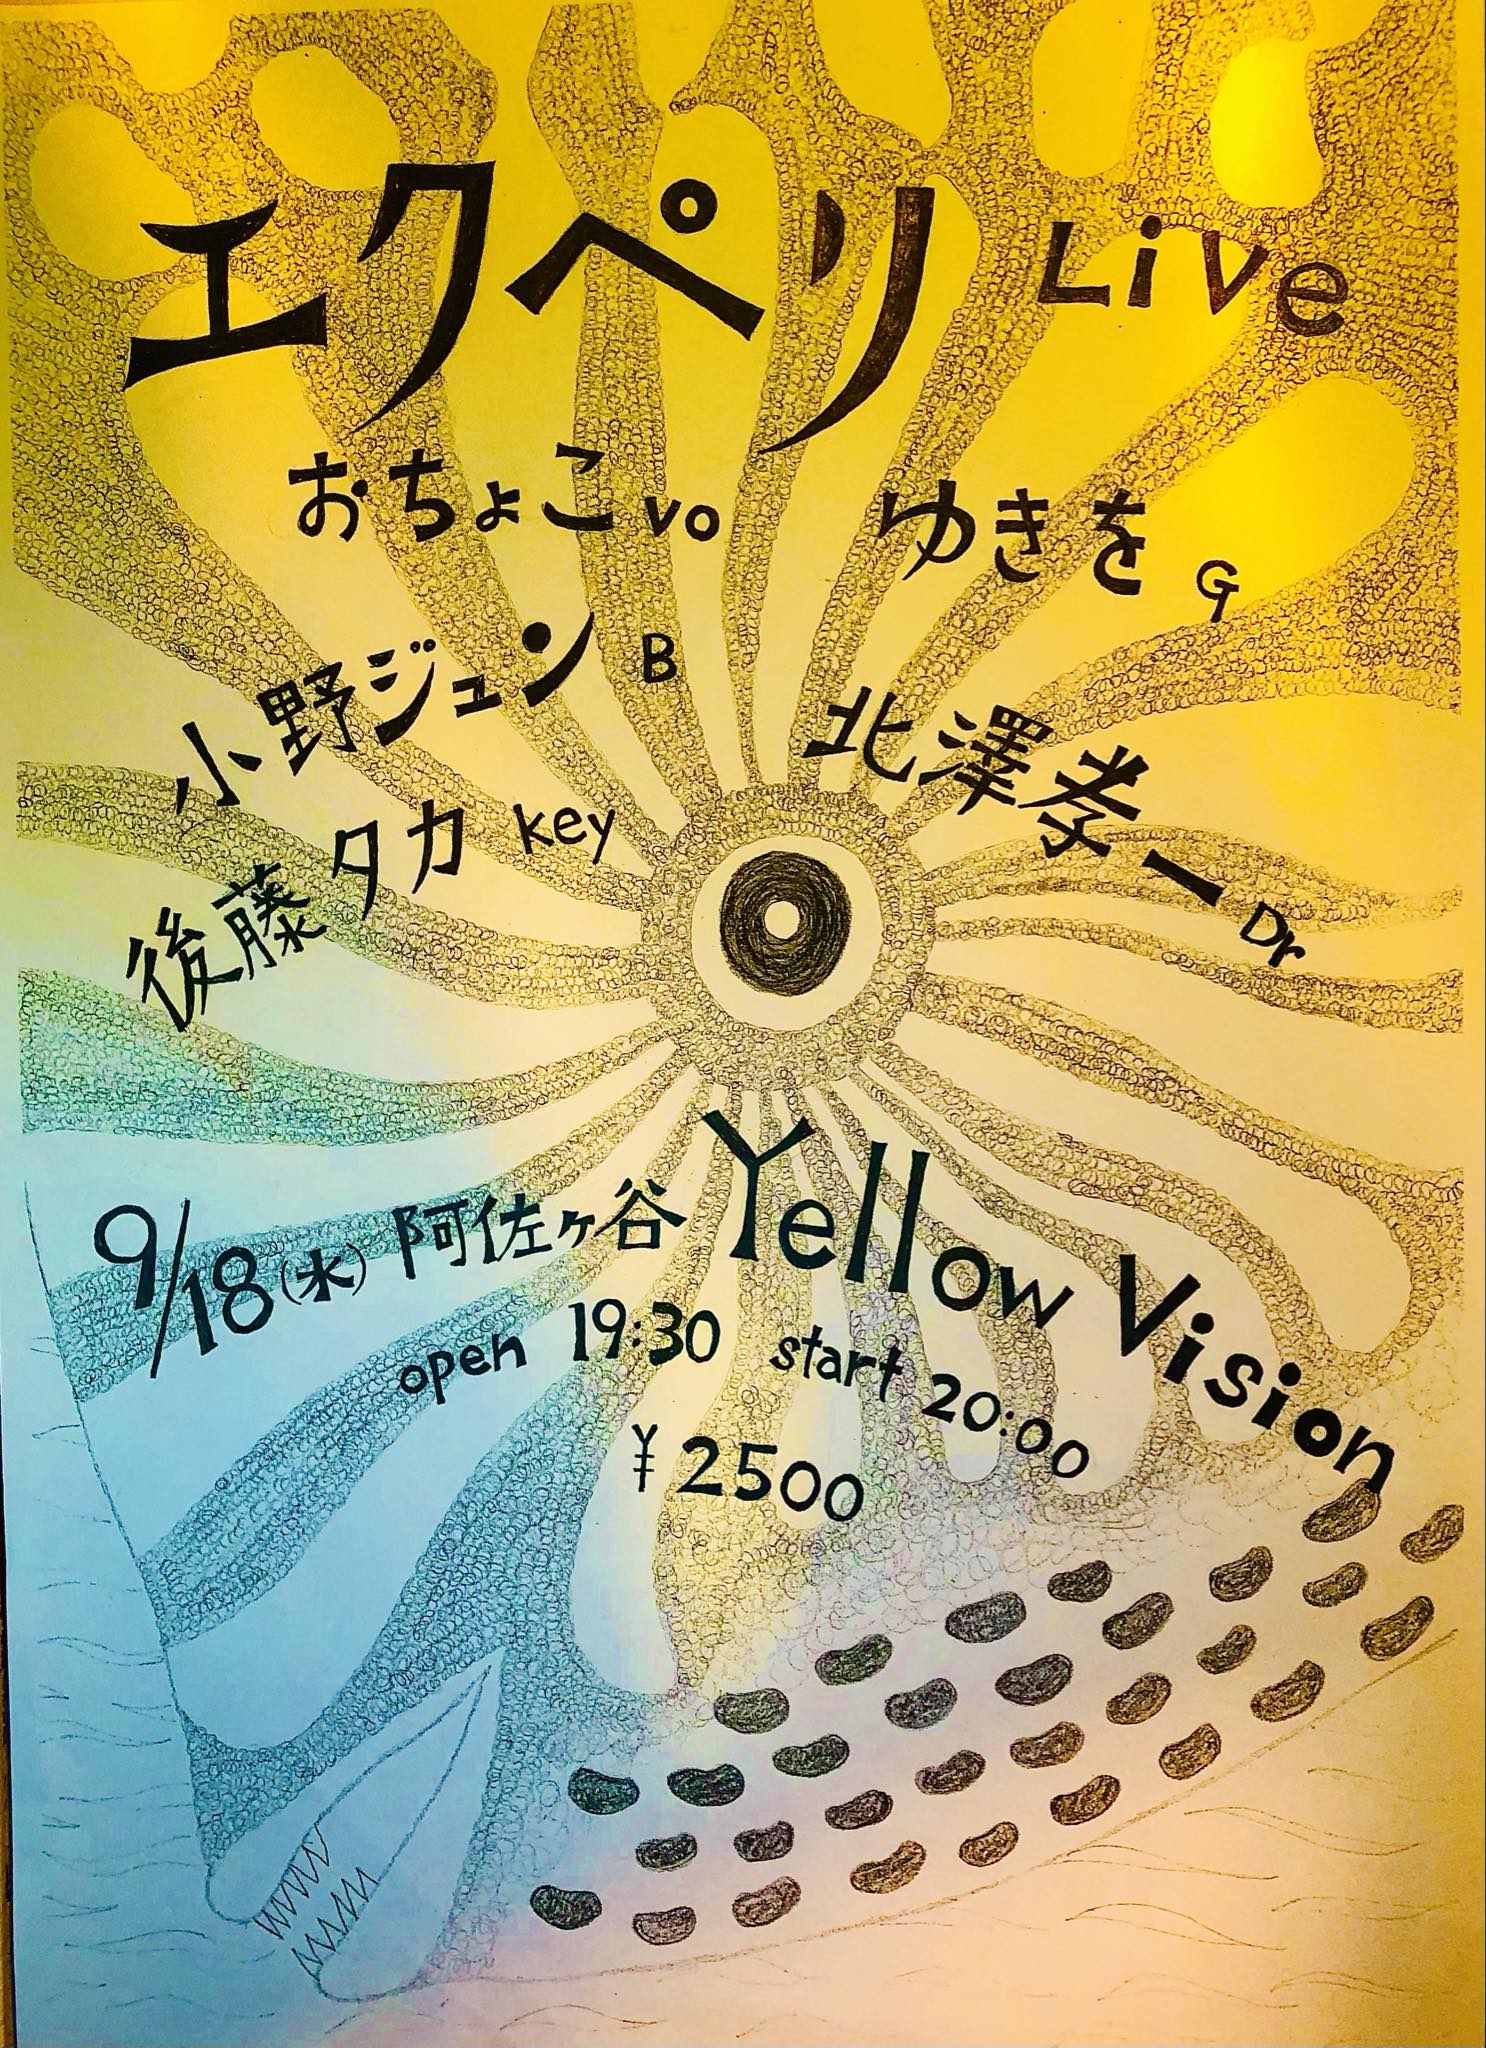 エクペリ Live
おちょこ vo
ゆきを G
小野ジュン B
北澤孝一 Dr
後藤タカ key
9/18(水) 阿佐ヶ谷 Yellow Vision
open 19:30 start 20:00
¥2500